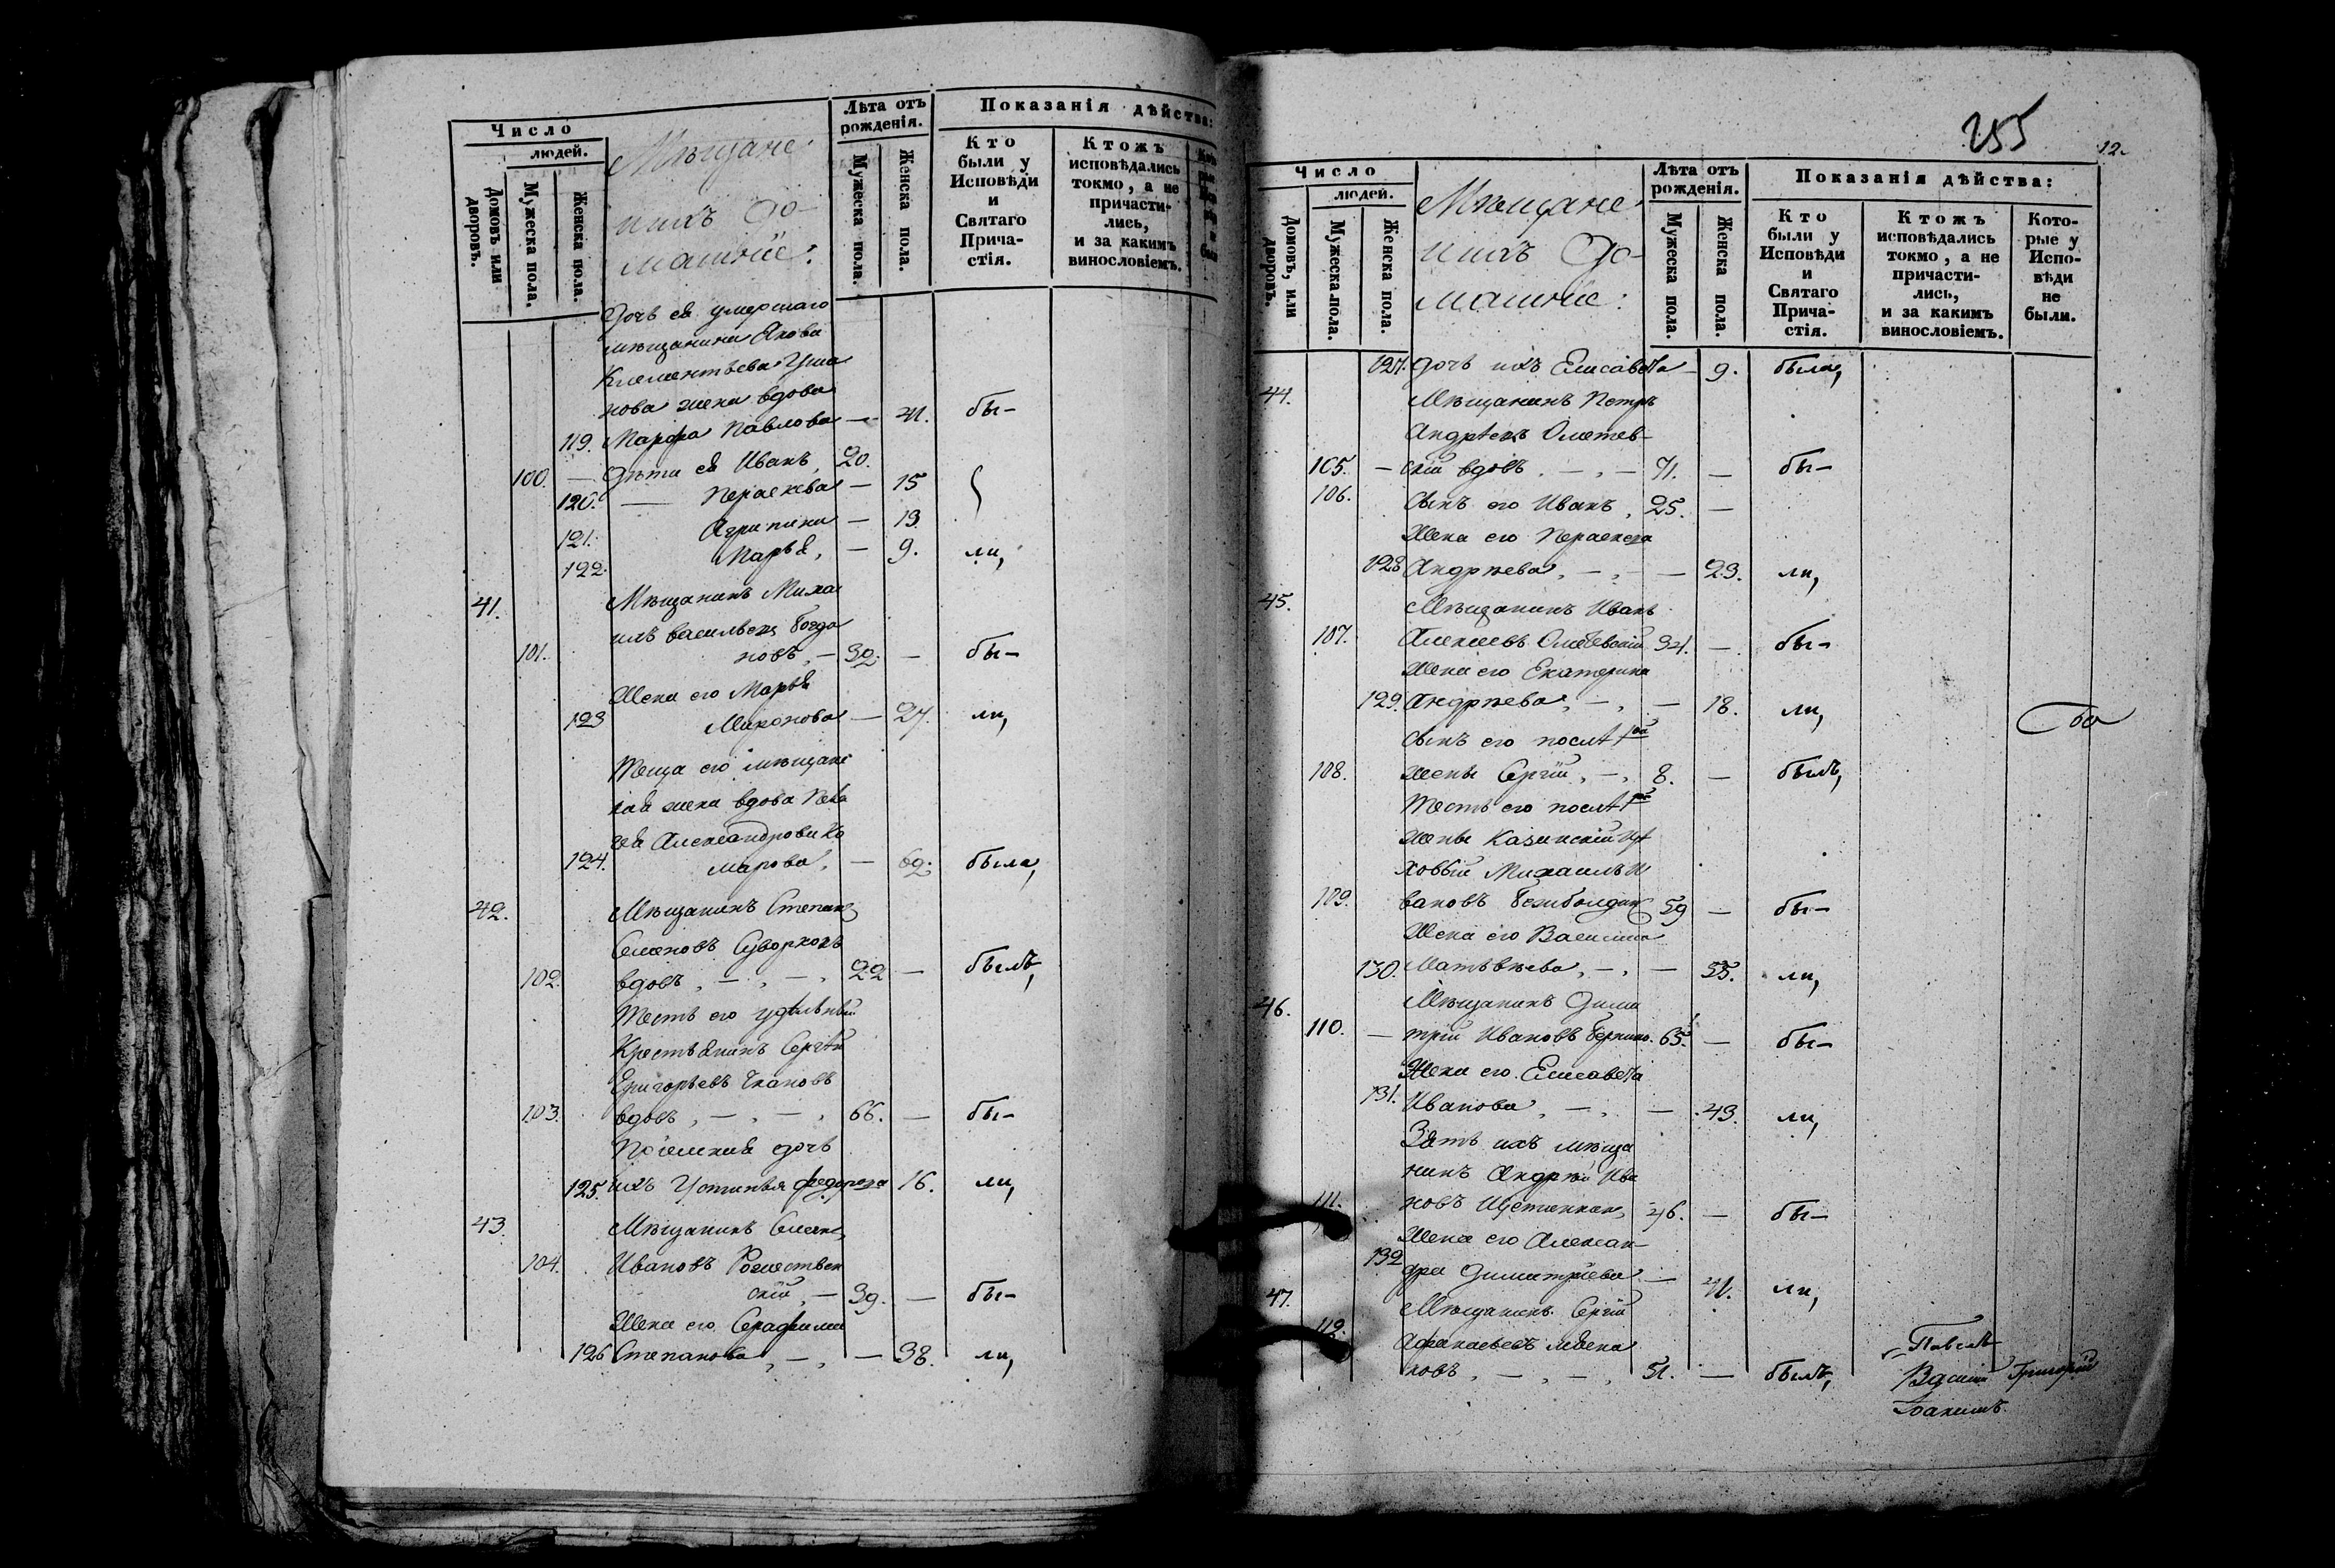 Число
людей.
Домовъ или дворовъ.
Мужеска пола.
Женска пола.
Мѣщане
ихъ до-
машніе:
Лѣта отъ рожденія.
Мужеска пола.
Женска пола.
Показанія дѣйства:
Кто были у Исповѣди и Святаго Прича-стія.
Ктожъ исповѣдались токмо, а не причасти-лись, и за какимъ винословіемъ.
Дочь ея умершаго
мѣщанина Якова
Климентьева
нова жена вдова
119. Марфа Павлова — 41. бы-
100. — Дѣти ея Иванъ, 20.
120. — Параскева — 15
121. Агрипина — 13
122. Марья, — 9. ли,
41. Мѣщанинъ Миха
илъ Васильевъ Богда
101. новъ, — 32. — бы-
Жена его Марья
123 Миронова — 27. ли,
Теща его мѣщанс
кая жена вдова
Александрова
124. марова, — 62. была,
42. Мѣщанинъ Степанъ
Семеновъ Суворковъ
102. вдовъ, — , — , 22 — былъ,
Тесть его удѣльный
Крестьянинъ Сергѣй
Григорьевъ
103. вдовъ, — , — , 66. — бы-
Пріемная дочь
125. ихъ Устинья Федорова 16. ли,
43. Мѣщанинъ Семенъ
104. Ивановъ Рожественс
скій, — 39. — бы-
Жена его Серафима
126 Степанова, — , — 38. ли,
255
12.
Число
людей.
Домовъ, или дворовъ.
Мужеска пола.
Женска пола.
Мѣщане
ихъ До-
машніе:
Лѣта отъ рожденія.
Мужеска пола.
Женска пола.
Показанія дѣйства:
Кто были у Исповѣди и Святаго Прича-стія.
Ктожъ исповѣдались токмо, а не причасти-лись, и за какимъ винословіемъ.
Кото-рые у Испо-вѣди не были.
127. Дочь ихъ Елисавета — 9. была,
44. Мѣщанинъ Петръ
Андреевъ
105. — скій вдовъ, — , — 71. — бы-
106. Сынъ его Иванъ, 25. —
Жена его Параскева
128 Андрѣева, — , — 23. ли,
45. Мѣщанинъ Иванъ
107. Алексеевъ 34. — бы-
Жена его Екатерина
129. Андрѣева, — , — 18. ли,
Сынъ его послѣ 1ой
108. жены Сергій, — , 8. — былъ,
Тесть его послѣ 1ой
жены Казинскій
Михаилъ И
109. вановъ 59 — бы-
Жена его Василиса
130. Матѳѣева, — , — 55. ли,
46. Мѣщанинъ Дими
110. — трій Ивановъ 65. — бы-
Жена его Елисавета
131. Иванова, — , — 43. ли,
Зять ихъ мѣща
нинъ Андрѣй Ива
111. новъ 46. — бы-
Жена его Алексан-
132 дра Димитріева — 41. ли,
47. Мѣщанинъ Сергій
112. Афанасьевъ
ковъ, — , — , 51. — былъ,
Павелъ
Григорій